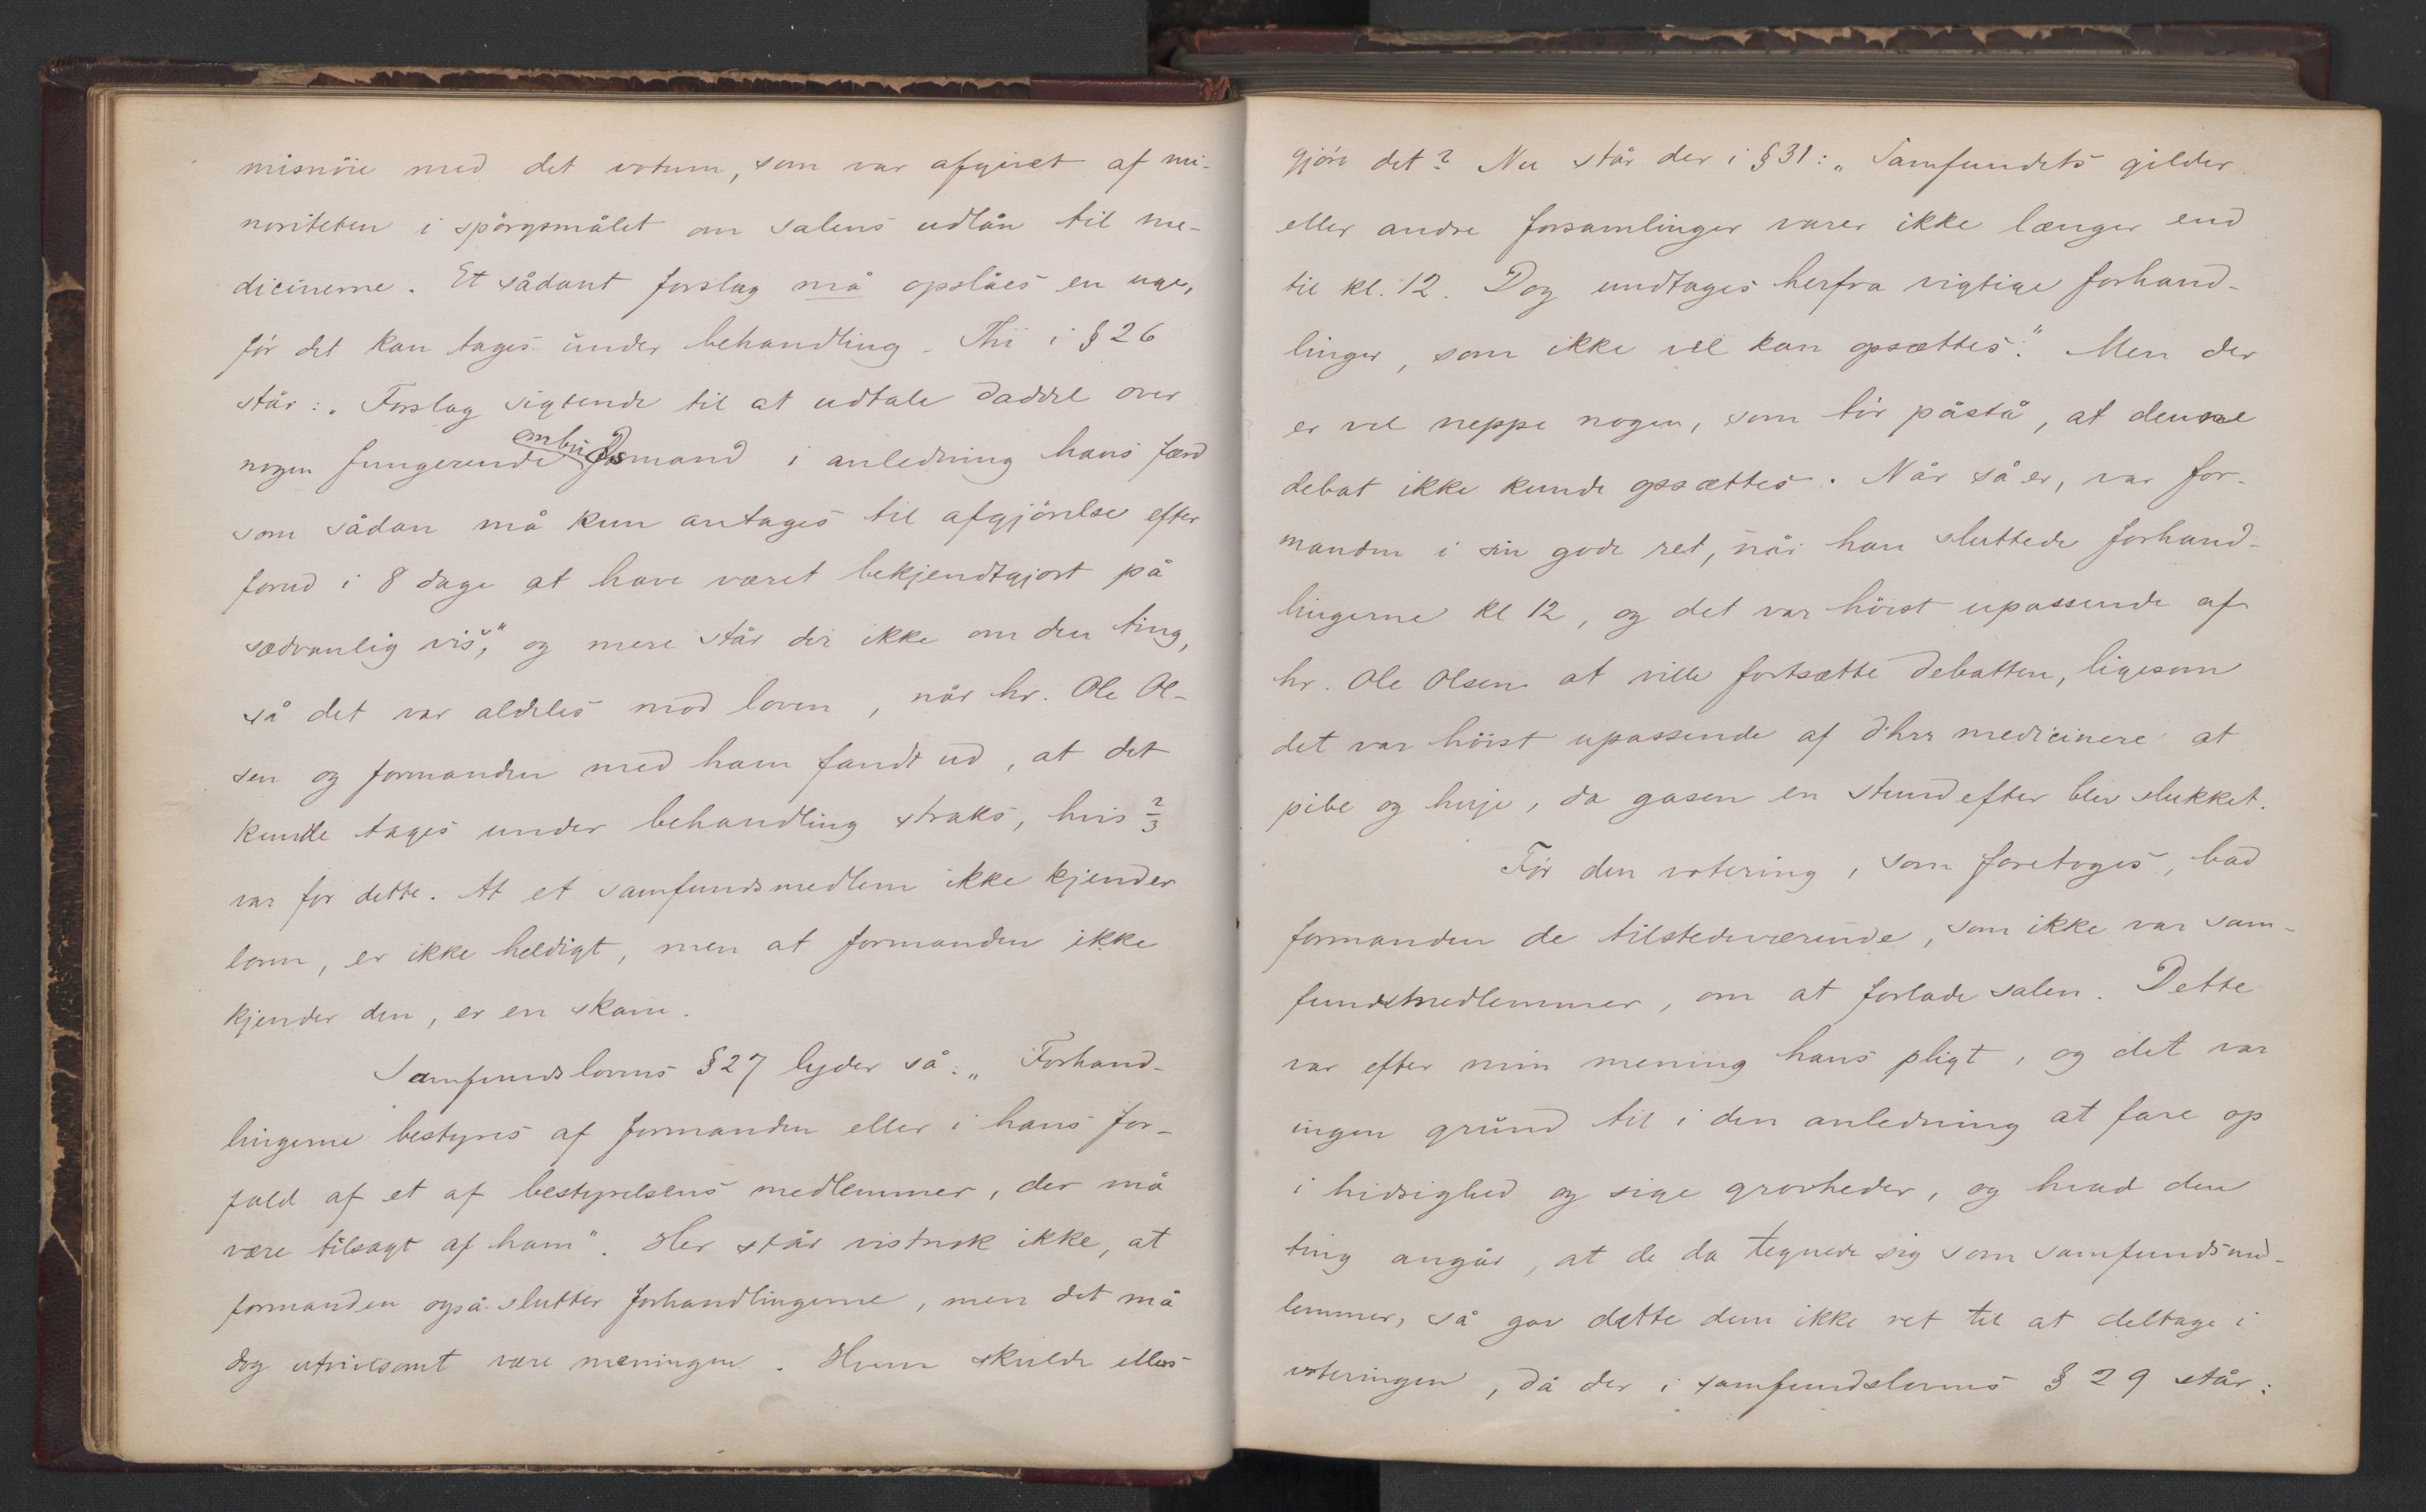 misnöie med det votum, som var afgivet af mi-
noriteten i spörgsmålet om salens udlån til me-
dicinerne. Et sådant forslag må opslåes en uge,
för det kan tages under behandling. Thi i § 26
står: „Forslag sigtende til at udtale daddel over
nogen fungerende embudsmand i anledning hans færd
som sådan må kun antages til afgjörelse efter
forud i 8 dage at have været bekjendtgjort på
sædvanlig vis," og mere står der ikke om den ting,
så det var aldeles mod loven, når hr. Ole Ol-
sen og formanden med ham fandt ud, at det
kunde tages under behandling straks, hvis 2/3
var for dette. At et samfundsmedlem ikke kjender
loven, er ikke heldigt, men at formanden ikke
kjender den, er en skam.
Samfundslovens § 27 lyder så: „Forhand-
lingerne bestyres af formanden eller i hans for-
fald af et af bestyrelsens medlemmer, der må
være tilsagt af ham". Her står vistnok ikke, at
formanden også slutter forhandlingerne, men det må
dog utvilsomt være meningen. Hvem skulde ellers
gjöre det? Nu står der i § 31: „Samfundets gilder
eller andre forsamlinger varer ikke længer end
til kl. 12. Dog undtages herfra vigtige forhand-
linger, som ikke vel kan opsættes". Men der
er vel neppe nogen, som tör påstå, at denne
debat ikke kunde opsættes. Når så er, var for-
manden i sin gode ret, når han sluttede forhand-
lingerne kl 12, og det var höist upassende af
hr. Ole Olsen at ville fortsætte debatten, ligesom
det var höist upassende af d'hrr medicinere at
pibe og huje, da gasen en stund efter blev slukket.
Før den votering, som foretoges, bad
formanden de tilstedeværende, som ikke var sam-
fundsmedlemmer, om at forlade salen. Dette
var efter min mening hans pligt, og det var
ingen grund til i den anledning at fare op
i hidsighed og sige grovheder, og hvad den
ting angår, at de da tegnede sig som samfundsmed-
lemmer, så gav dette dem ikke ret til at deltage i
voteringen, da der i samfundslovens § 29 står: